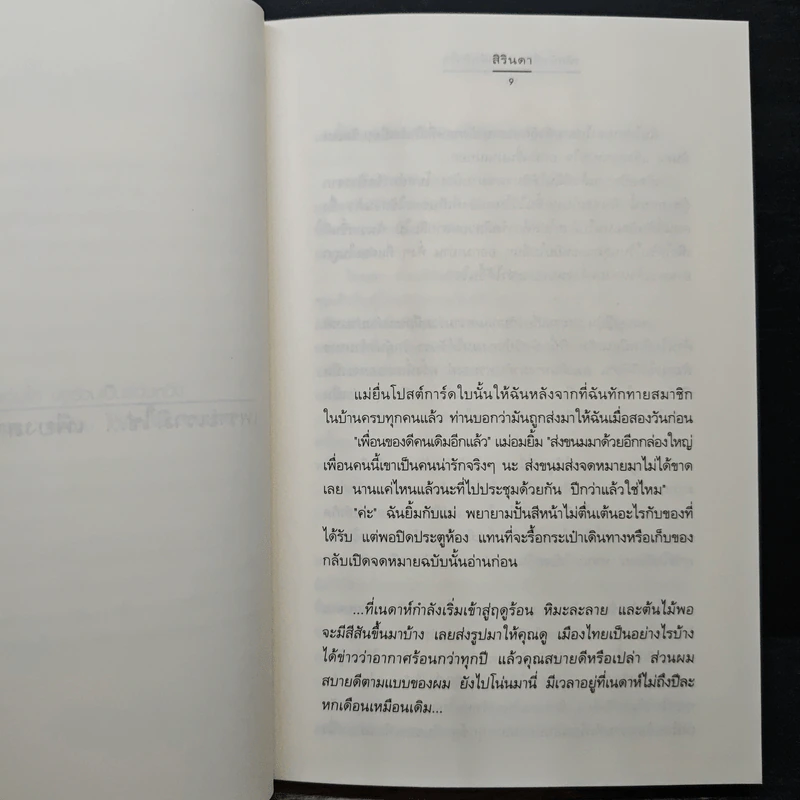 สิรินดา
๙
แม่ยื่นโปสต์การ์ดใบนั้นให้ฉันหลังจากที่ฉันทักทายสมาชิก
ในบ้านครบทุกคนแล้ว ท่านบอกว่ามันถูกส่งมาให้ฉันเมื่อสองวันก่อน
"เพื่อนของดีคนเดิมอีกแล้ว" แม่อมยิ้ม "ส่งขนมมาด้วยอีกกล่องใหญ่
เพื่อนคนนี้เขาเป็นคนน่ารักจริงๆ นะ ส่งขนมส่งจดหมายมาไม่ได้ขาด
เลย นานแค่ไหนแล้วนะที่ไปประชุมด้วยกัน ปีกว่าแล้วใช่ไหม"
"ค่ะ" ฉันยิ้มกับแม่ พยายามปั้นสีหน้าไม่ตื่นเต้นอะไรกับของที่
ได้รับ แต่พอปิดประตูห้อง แทนที่จะรื้อกระเป๋าเดินทางหรือเก็บของ
กลับเปิดจดหมายฉบับนั้นอ่านก่อน
...ที่เนดาห์กำลังเริ่มเข้าสู่ฤดูร้อน หิมะละลาย และต้นไม้พอ
จะมีสีสันขึ้นมาบ้าง เลยส่งรูปมาให้คุณดู เมืองไทยเป็นอย่างไรบ้าง
ได้ข่าวว่าอากาศร้อนกว่าทุกปี แล้วคุณสบายดีหรือเปล่า ส่วนผม
สบายดีตามแบบของผม ยังไปโน่นมานี่ มีเวลาอยู่ที่เนดาห์ไม่ถึงปีละ
หกเดือนเหมือนเดิม...